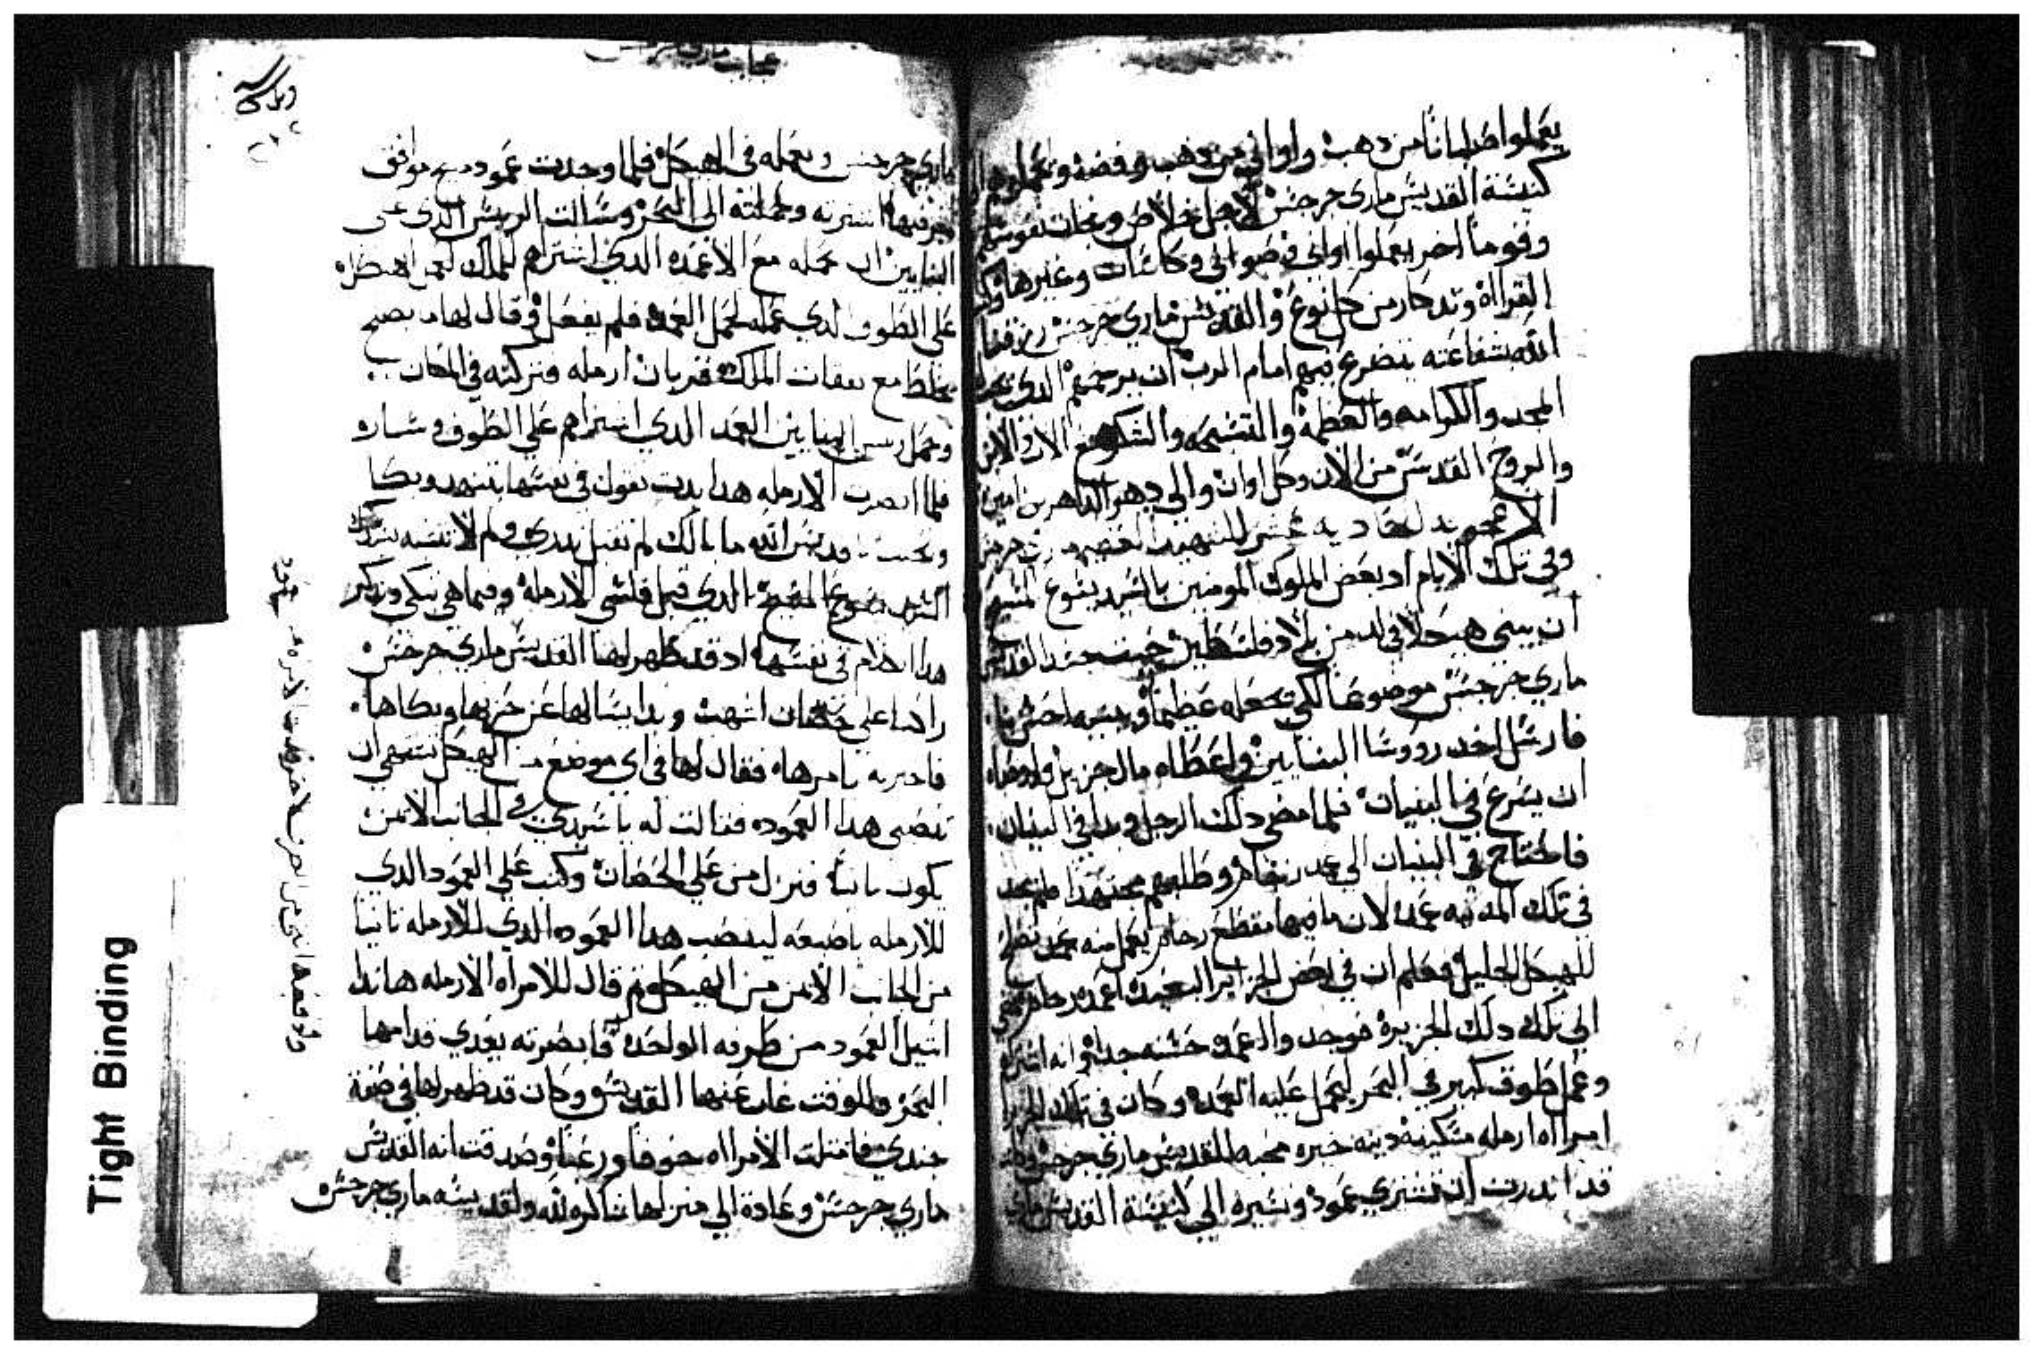 يعملوا صلبانا من دهب واواني من دهب وفضه ويحملوهم الى
كنيسة القديس ماري جرجس لاجل خلاص ونجات نفوسهم
وقوما اخر يعملوا اواني صواني وكاسات وغيرها
القرااه وتدكار من كل نوع والقديس ماري جرجس يرزقنا
الله بشفاعته يتضرع فيهم امام الرب ان يرحمهم الدي
المجد والكرامه والعظمه والتسبحه والشكر مع الاب والابن
والروح القدس من الان وكل اوان والى دهر الداهرين امين
الاعجوبه الحاديه عشر للشهيد العظيم ماري جرجس
وفي تلك الايام اراد بعض الملوك المومنين بالسيد يسوع المسيح
ان يبني هيكلا في لد من بلاد فلسطين حيث جسد القديس
ماري جرجس موضوعا لكي يجعله عظيما
فارسل اخد رووسا البنايين واعطاه مال جزيل واوصاه
ان يسرع في البنيان فلما مضى دلك الرجل وبدا في البنيان
فاحتاج في البنيان الى عمد رخام وطلبهم مجتهدا فلم يجد
في تلك المدينه عمد لان ما فيها مقطع رخام يعمل منه عمد تصلح
للهيكل الجليل فعلم ان في بعض الجزاير البعيده اعمده رخام فمضى
الى تلك الجزيره فوجد والاعمده حسنه جدا وانه اشتراه
وعمل طوف كبير في البحر ليحمل عليه العمد وكان في تلك الجزيره
امرااه ارمله مسكينه دينه خيره محبه للقديس ماري جرجس
قد اندرت ان تشتري عمود وتسيره الى كنيسة القديس ماري
عجايب ماري جرجس
ماري جرجس ويعمله في الهيكل فلما وجدت عمود موافق
اشترته وحملته الى البحر وسالت الريس الدي على
البنايين ان يحمله مع الاعمده الدي اشتراهم للملك لعمل الهيكل
على الطوف الدي عمله لحمل العمد فلم يفعل وقال لها ما يصح
نخلط مع نفقات الملك قربان ارمله فتركته في المكان
وحمل ريس البنايين العمد الدي اشتراهم على الطوف وسار
فلما ابصرت الارمله هدا بدت تقول في نفسها بتنهد وبكا
يا قديس الله ما بالك لم تقبل ندري ولم لا تتشبه بسيدك
السيد يسوع المسيح الدي قبل فلسي الارمله وفيما هي تبكي وتدكر
هدا الكلام في نفسها اد قد ظهر لها القديس ماري جرجس
راكبا على حصان اشهب وبدا يسالها عن حزنها وبكاها
فاخبرته بامرها فقال لها في اي موضع من الهيكل تشتهي ان
تنصبي هدا العمود فقالت له يا سيدي في الجانب الايمن
يكون تانيا فنزل من على الحصان وكتب على العمود الدي
للارمله باصبعه لينصب هدا العمود الدي للارمله تانيا
من الجانب الايمن من الهيكل وتم قال للامراه الارمله هاندا
اشيل العمود من طرفه الواحد فابصرته يعدي قدامها
البحر وللوقت غاب عنها القديس وكان قد ظهر لها في صفة
جندي فامتلت الامرااه خوفا ورعبا وصدقت انه القديس
ماري جرجس وعادة الى منزلها شاكره لله ولقديسه ماري جرجس
Tight Binding